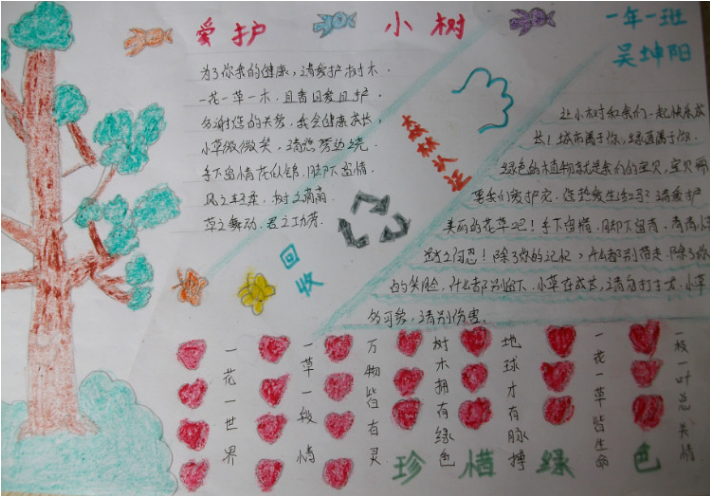 爱护 小树
一年一班
吴坤阳
为了你我的健康，请爱护树木．
一花一草一木，且看且爱且护．
多谢您的关爱，我会健康成长，
小草微微笑，请您旁边绕．
手下留情花似锦，脚下留情
风之轻柔，树之
草之舞动，君之功劳．
森林认证
回收
让小树和我们一起快乐成
长！城市属于你，绿意属于你．
绿色的植物就是我们的宝贝，宝贝需
要我们爱护它．请爱护
美丽的花草吧！手下留情，脚下留青，
除了你的记忆，什么都别带走，除了你
的笑脸，什么都别留下．小草在成长，请勿打扰．小草
多可爱，请别伤害．
一花一世界
一草一级情
万物皆有灵
树木拥有绿色
地球才有脉搏
一花一草皆生命
一枝一叶总关情
珍惜绿色